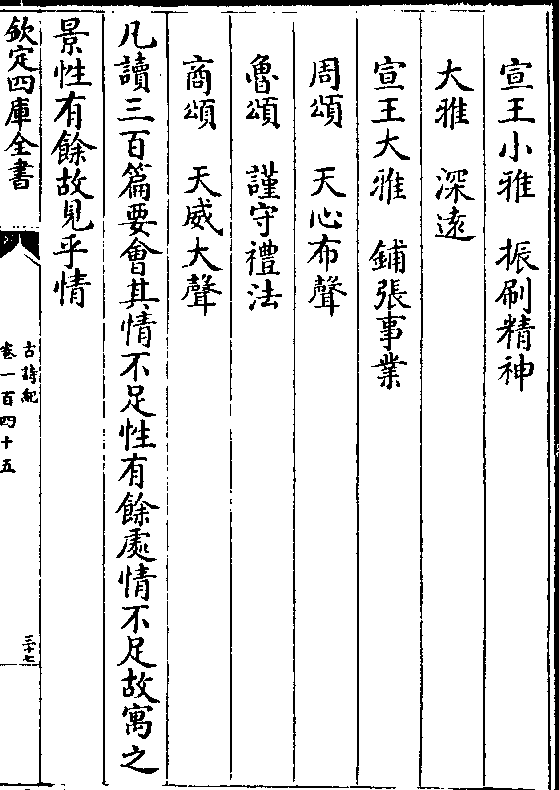 宣王小雅　振刷精神
大雅　深遠
宣王大雅　鋪張事業
周頌　天心布聲
魯頌　謹守禮法
商頌　天威大聲
凡讀三百篇要會其情不足性有餘處情不足故寓之
景性有餘故見乎情
欽定四庫全書
古詩紀
卷一百四十五
三十七